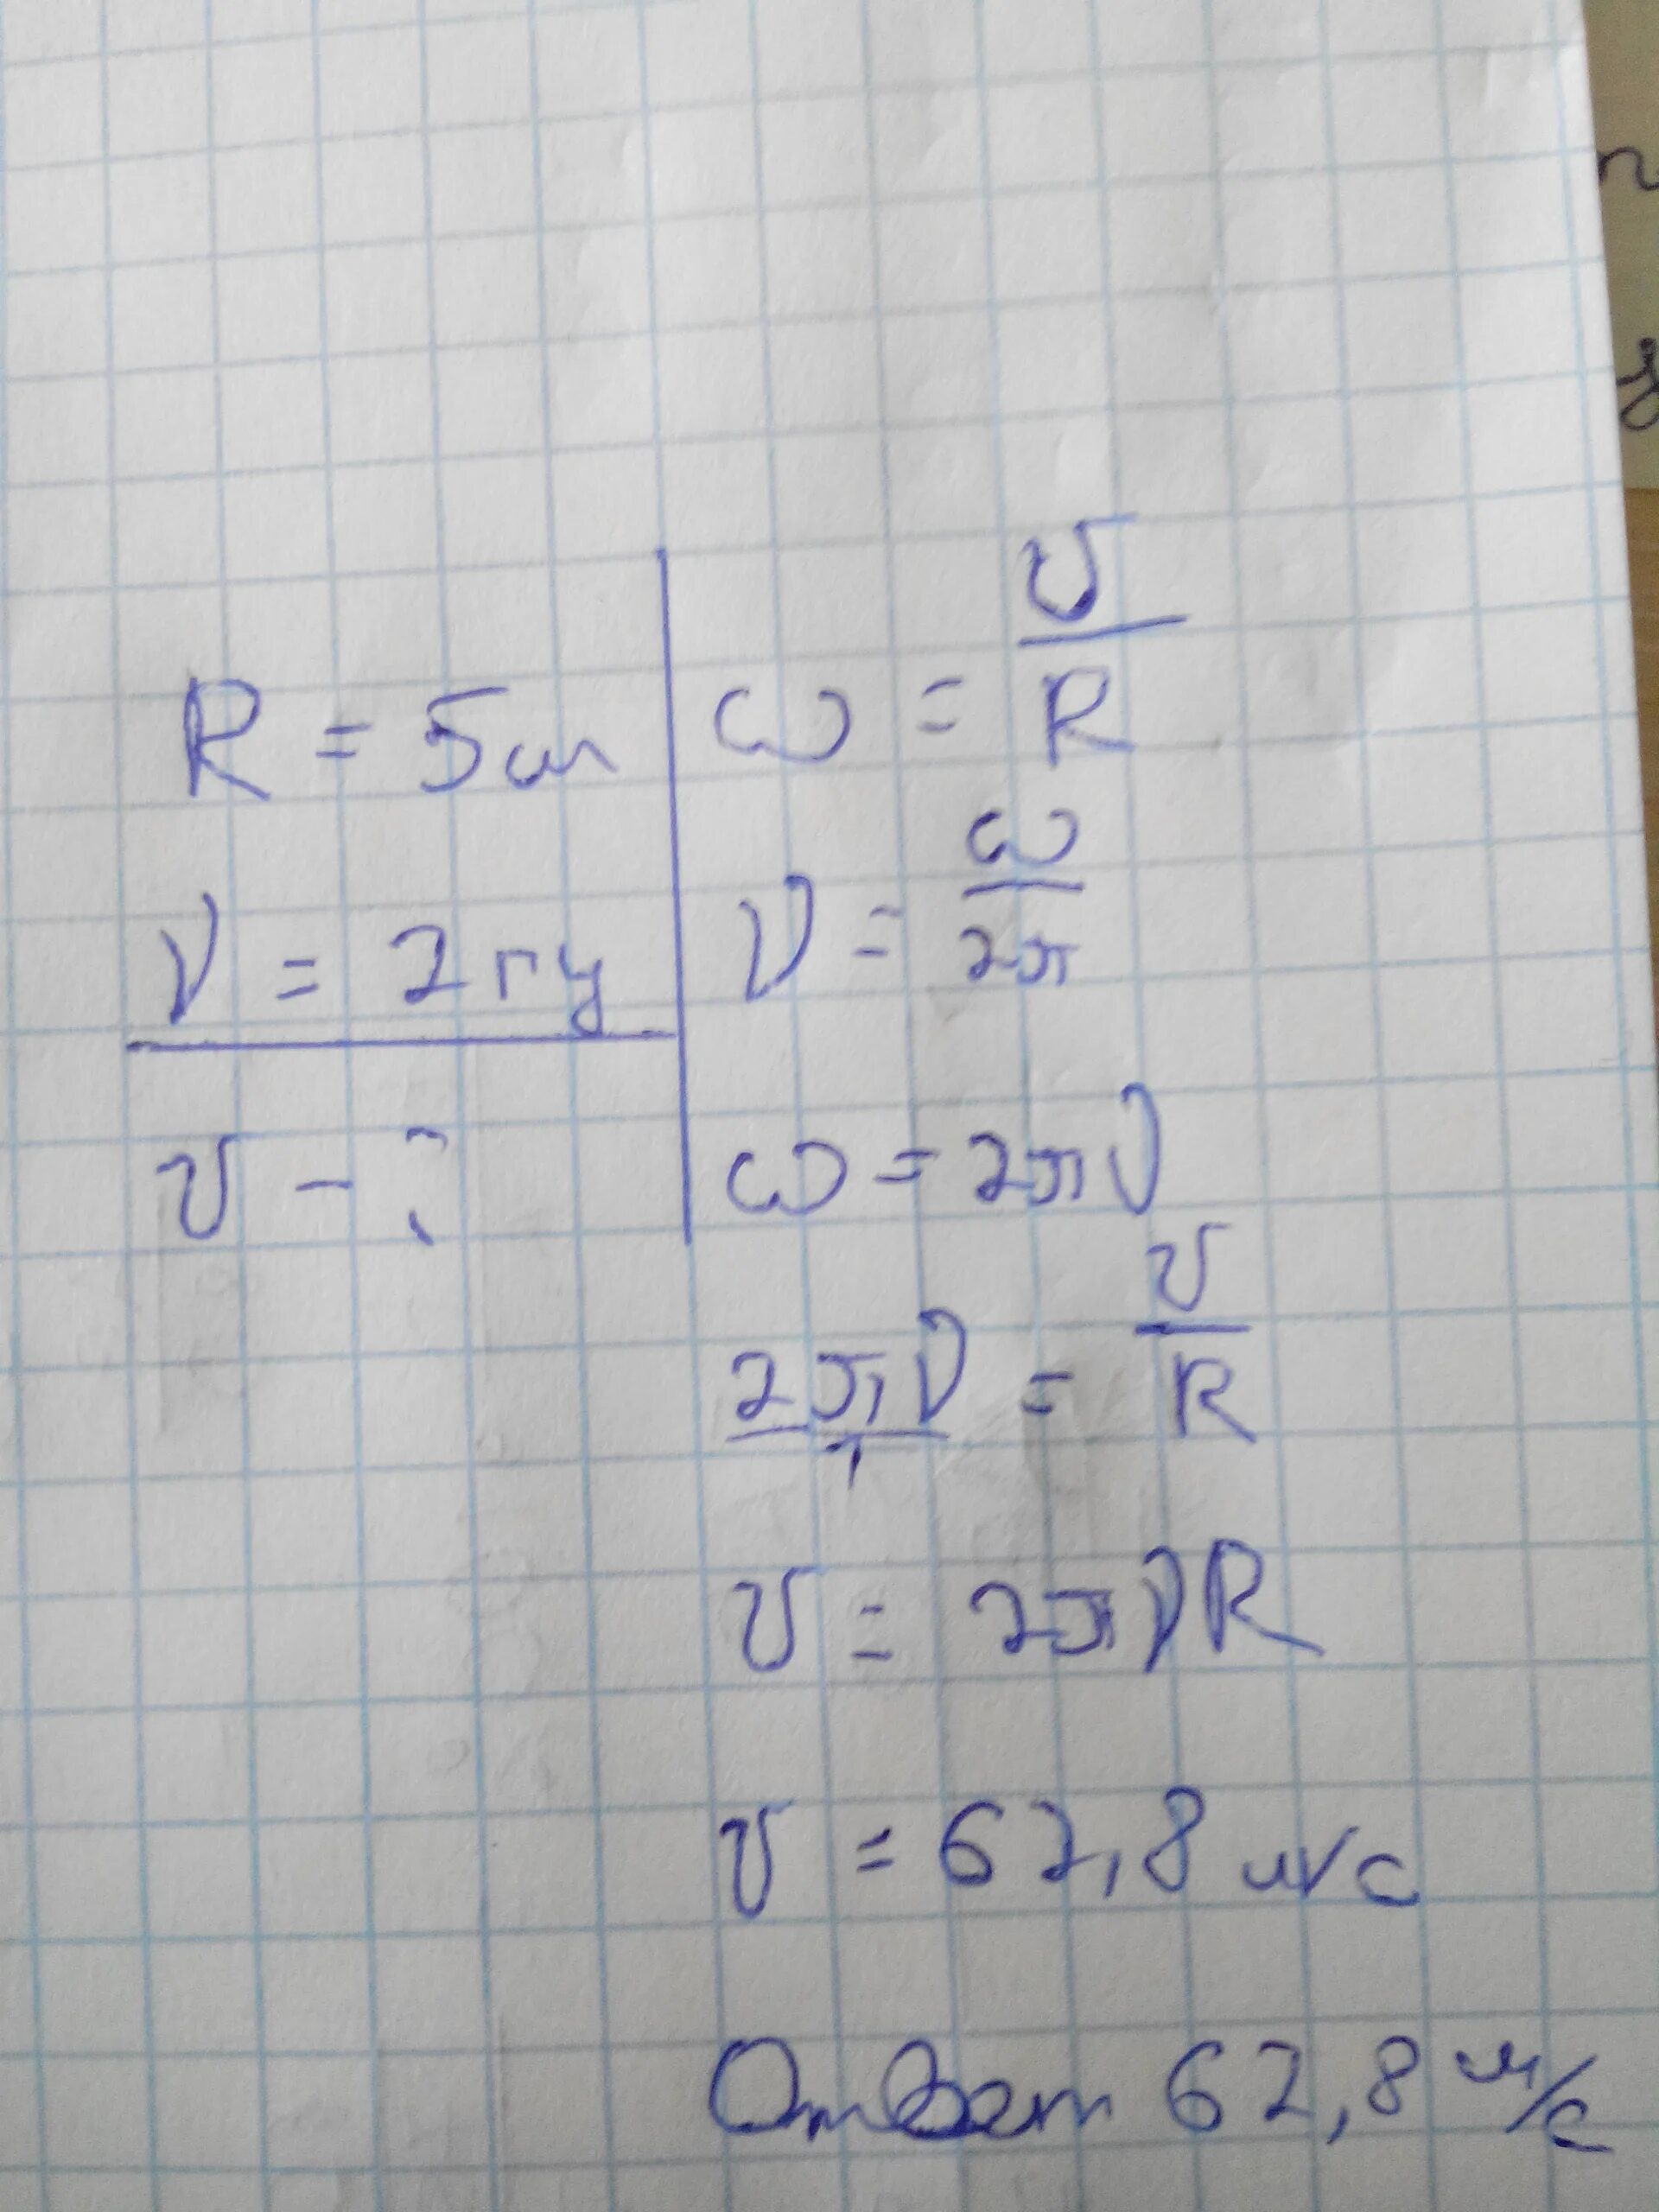 R = 5м
ν = 2гц
υ - ?
ω = υ/R
ν = ω/2π
ω = 2πν
2πν/1 = υ/R
υ = 2πνR
υ = 62,8 м/с
Ответ 62,8 м/с